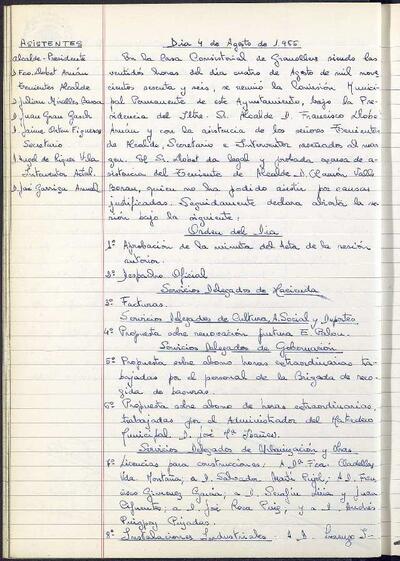 ASISTENTES
Alcalde-Presidente
D. Fco. Llobet Arnán
Tenientes Alcalde
D. Jaime
D. Juan Grau
D. Jaime Figueras
Secretario
D. Angel de Riquer Vila
Interventor Actal.
D. José Garriga
Dia 4 de Agosto de 1.966
En la Casa Consistorial de Granollers siendo las
veintidos horas del dia cuatro de Agosto de mil nove-
cientos sesenta y seis, se reunió la Comisión Munici-
pal Permanente de este Ayuntamiento, bajo la Pre-
sidencia del Iltre. Sr. Alcalde D. Francisco Llobet
Arnán y con la asistencia de los señores Tenientes
de Alcalde, Secretario e Interventor reseñados al mar-
gen. El Sr. Llobet da legal y probada excusa de a-
sistencia del Teniente de Alcalde D. Ramón Valls
quien no ha podido asistir por causas
justificadas. Seguidamente declara abierta la se-
sión bajo la siguiente:
Orden del Dia
1º Aprobación de la minuta del Acta de la sesión
anterior.
2º Despacho Oficial
Servicios Delegados de Hacienda
3º Facturas.
Servicios Delegados de Cultura, A. Social y Deportes
4º Propuesta sobre renovación E. Palou.
Servicios Delegados de Gobernación
5º Propuesta sobre abono horas extraordinarias tra-
bajadas por el personal de la Brigada de reco-
gida de basuras.
6º Propuesta sobre abono de horas extraordinarias,
trabajadas por el Administrador del Matadero
Municipal D. José Mª Ibañez.
Servicios Delegados de Urbanización y Obras
7º Licencias para construcciones: A Dª Fca.
Vda. Montaña; a D. Salvador Pujol; a D. Fran-
cisco Gimenez Garcia; a D. Serafin y Juan
Cifuentes; a D. José Rosa Puig; y a D. Andrés
Puigpey Pujadas.
8º Instalaciones Industriales. A D. Lorenzo